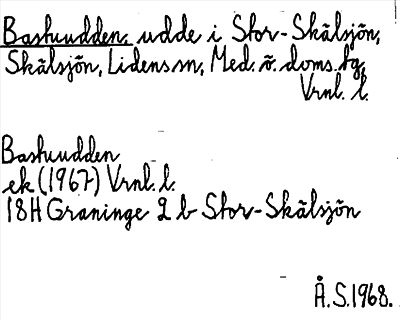 Bastuudden, udde i Stor-Skälsjön,
Skälsjön, Lidens sn, Med. ö. doms. tg,
Vrnl. l.
Bastuudden
ek (1967) Vrnl. l.
18H Graninge 2 b Stor-Skälsjön
Å.S. 1968.